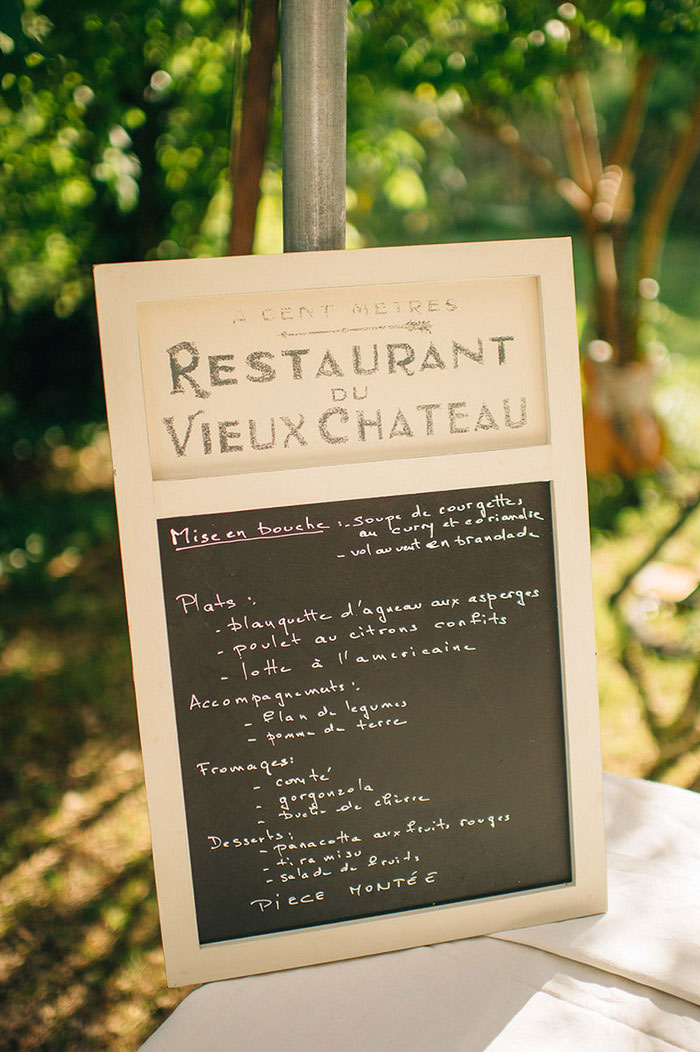 A CENT METRES
RESTAURANT
DU
VIEUX CHATEAU
Mise en bouche :- soupe de courgettes
au curry et coriandre
- vol au vent en brandade
Plats :
- blanquette d'agneau aux asperges
- poulet au citrons confits
- lotte à l'americaine
Accompagnements :
- flan de legumes
- pomme de terre
Fromages:
- comté
- gorgonzola
- buche de chèvre
Desserts:
- panacotta aux fruits rouges
- tiramisu
- salade de fruits
PIECE MONTÉE